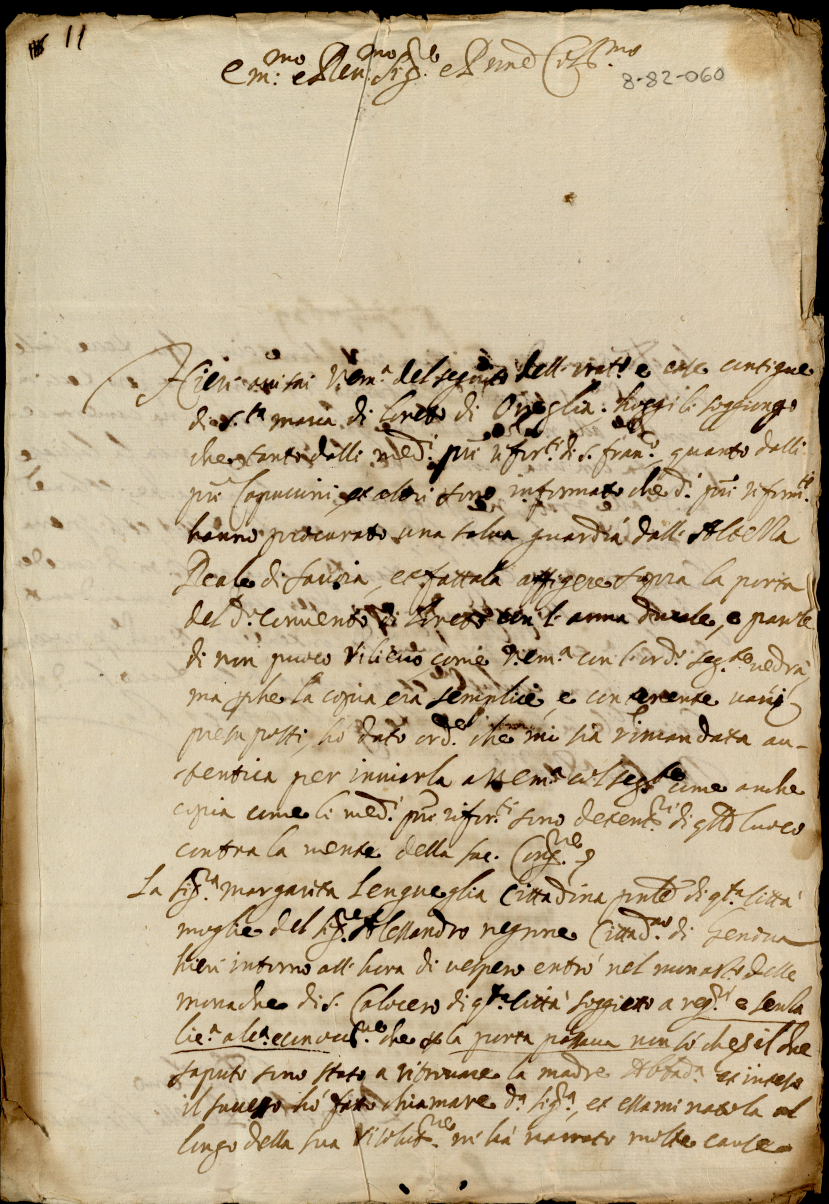 11
Em.mo e Rev.mo Sig.re e P.rone
8-82-060
Hieri avisai V. Em.a del seguito delli e case contigue
di S.ta Maria di Loreto di Oneglia. hoggi li soggiongo
che tanto dalli med.i p.ri rifor.ti di S. Fran.co quanto dalli
p.ri Capuccini, et altri sono informato che d.i p.ri riform.ti
hanno procurato una salva guardia dall' Altezza
Reale di Savoia, et fattala affigere sopra la porta
del d.o Convento di Loreto con l'arma ducale, e parole
di non puoco come V. Em.a con l'ord.o seg.te vedrà
ma perche la copia era semplice, e contenente varij
presuposti, ho dato ord.e che mi sia rimandata au-
tentica per inviarla a V. Em.a col seg.te come anche
copia come li med.i p.ri rifor.ti sono detent.ri di q.to luoco
contra la mente della Sac. Cong.ne
La Sig.ra Margarita Lengueglia Cittadina di q.ta Città
moglie del Sig.r Alessandro negrone Cittad.no di Genova
hieri intorno all' hora di vespero entrò nel monast.o delle
monache di S. Calocero di q.ta Città soggietto a reg.ri e senza
lic.a alc.a che la porta non so che, il che
saputo sono stato a ritrovare la madre Abbad.a et inteso
il successo hò fatto chiamare d.a Sig.ra, et essaminatola al
lungo della sua mi hà narrato molte cause